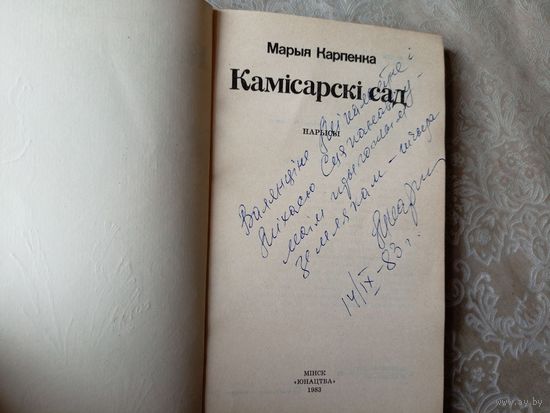 Марыя Карпенка
Камісарскі сад
НАРЫСЫ
Валянціне Міхайлаўне і
Міхасю Сцяпанавічу -
маім прыгожым
землякам - шчыра
14/IX-83 г.
МІНСК
«ЮНАЦТВА»
1983
www.ay.by